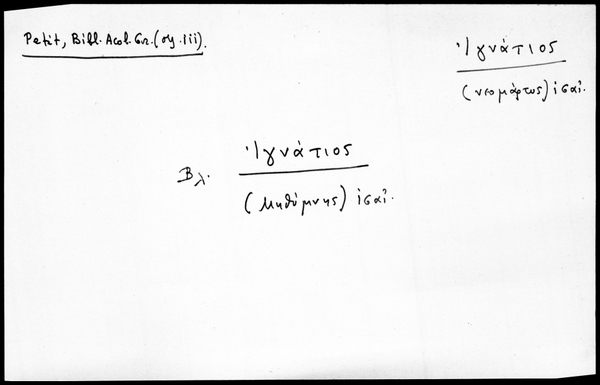 Petit, Bibl. Acol. Gr. (σγ. lii).
Ἰγνάτιος
(νεομάρτυς)
Βλ. Ἰγνάτιος
(Μηθύμνης)